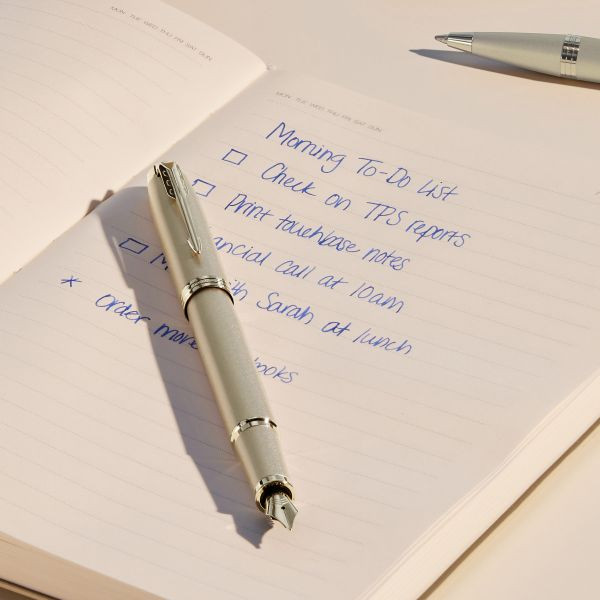 MON TUE WED THU FRI SAT SUN
MON TUE WED THU FRI SAT SUN
Morning To-Do List
Check on TPS reports
Print touchbase notes
ancial call at 10am
M ith Sarah at lunch
* order mor ooks